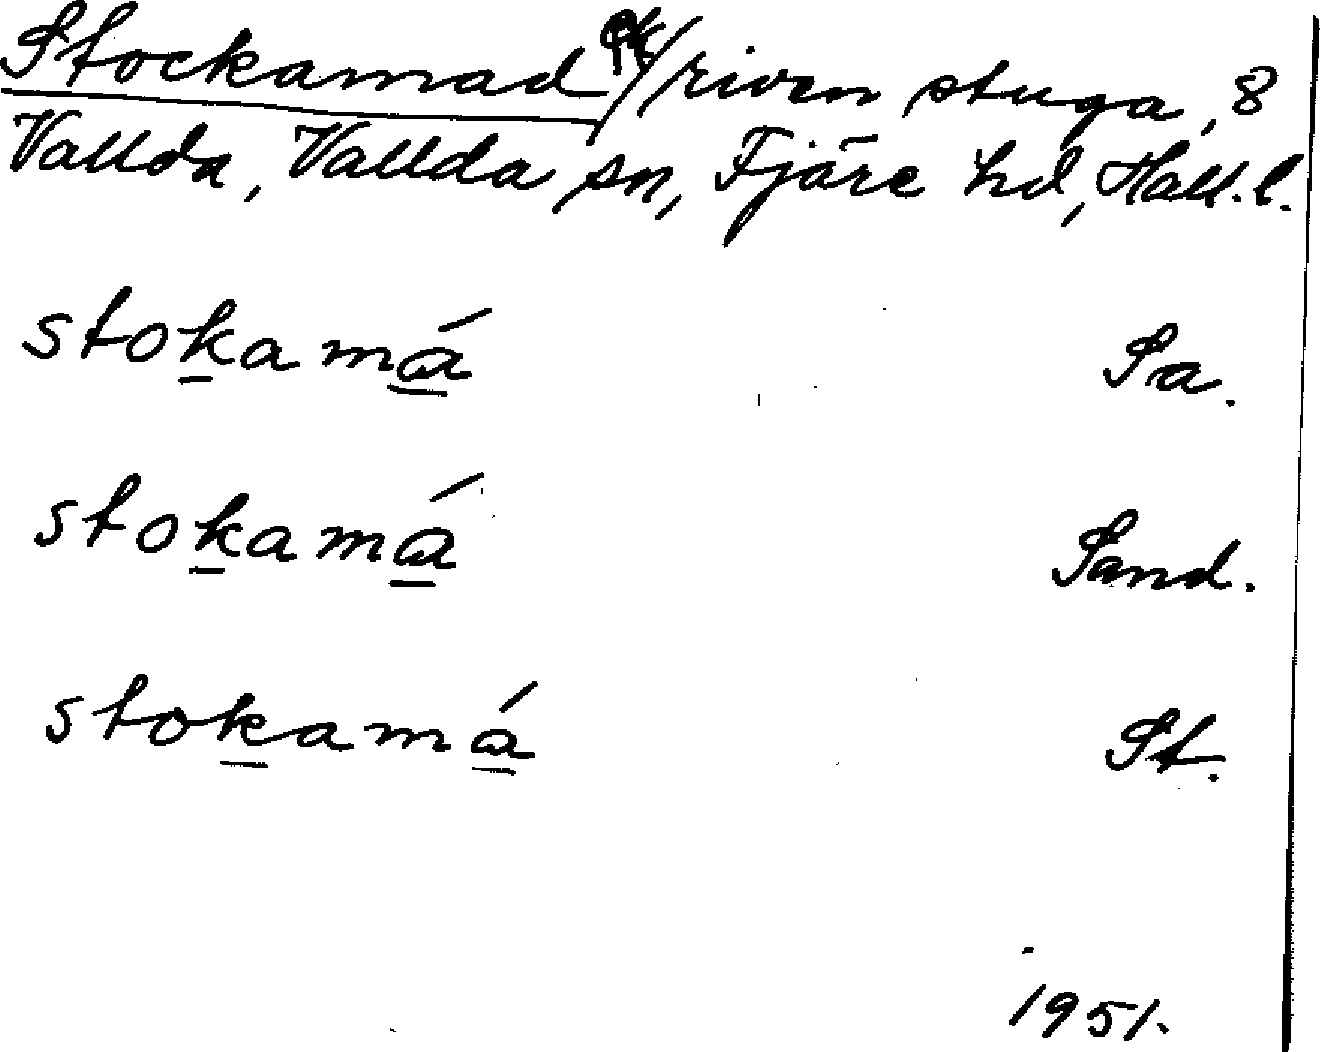 Stockamad riven stuga, 8
Vallda, Vallda sn, Fjäre hd, Hall.l.
stokamá Sa.
stokamá Sand.
stokamá St.
1951.